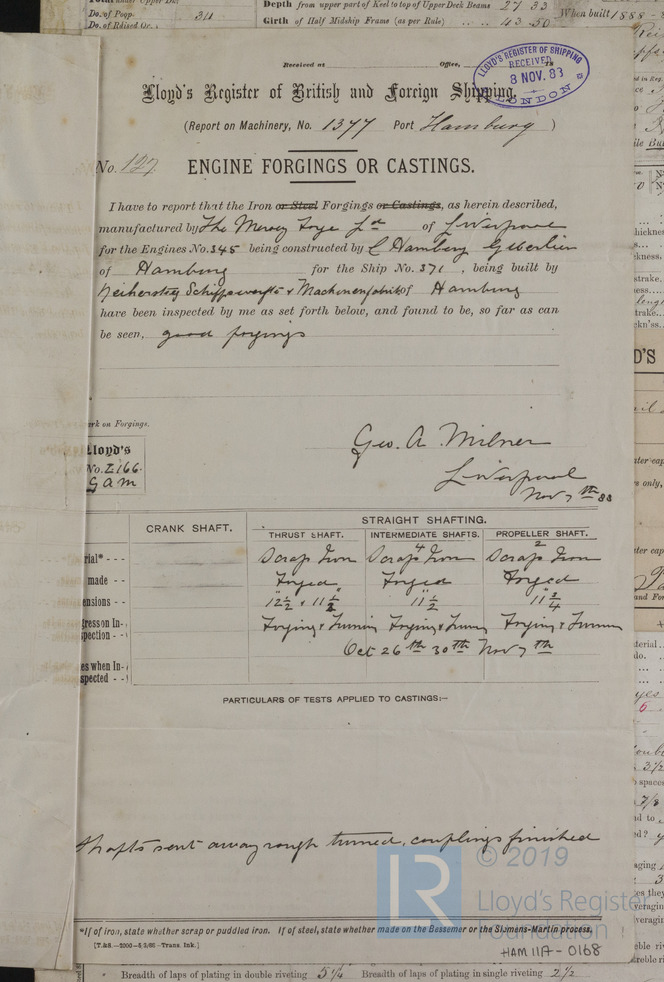 Depth from upper part of Keel to top of Upper Deck Beams 27 33
When built 1888
No. of Poop 34
Girth of Half Midship Frame (as per Rule) 43 50
No. of Raised Qr.
Received at Office, 18
LLOYD'S REGISTER OF SHIPPING
RECEIVED
8 NOV. 83
LONDON
Lloyd's Register of British and Foreign Shipping.
(Report on Machinery, No. 1377 Port Hamburg )
No. 127. ENGINE FORGINGS OR CASTINGS.
I have to report that the Iron or Steel Forgings or Castings, as herein described,
manufactured by The Mersey Forge Ld of Liverpool
for the Engines No. 345 being constructed by
of Hamburg for the Ship No. 371 , being built by
Reiherstieg Schiffswerfte & Maschinenfabrik of Hamburg
have been inspected by me as set forth below, and found to be, so far as can
be seen, good forgings
ark on Forgings.
Geo. A. Milner
Lloyd's
No. Z166.
GAM
Liverpool
Nov 7th 88
CRANK SHAFT. STRAIGHT SHAFTING.
THRUST SHAFT. INTERMEDIATE SHAFTS. PROPELLER SHAFT.
4 2
rial* - - - Scrap Iron Scrap Iron Scrap Iron
made - - Forged Forged Forged
ensions - - 12 1/2 & 11 1/2 11 1/2 11 3/4
gress on In-
spection - - Forging & Turning Forging & Turning Forging & Turning
es when In-
spected - - Oct 26th 30th Nov 7th
PARTICULARS OF TESTS APPLIED TO CASTINGS:—
Shafts sent away rough turned, couplings finished
LR © 2019
Lloyd's Register
Foundation
*If of iron, state whether scrap or puddled iron. If of steel, state whether made on the Bessemer or the Siemens-Martin process.
HAM 11A - 0168
Breadth of laps of plating in double riveting 5 1/4 Breadth of laps of plating in single riveting 2 1/2